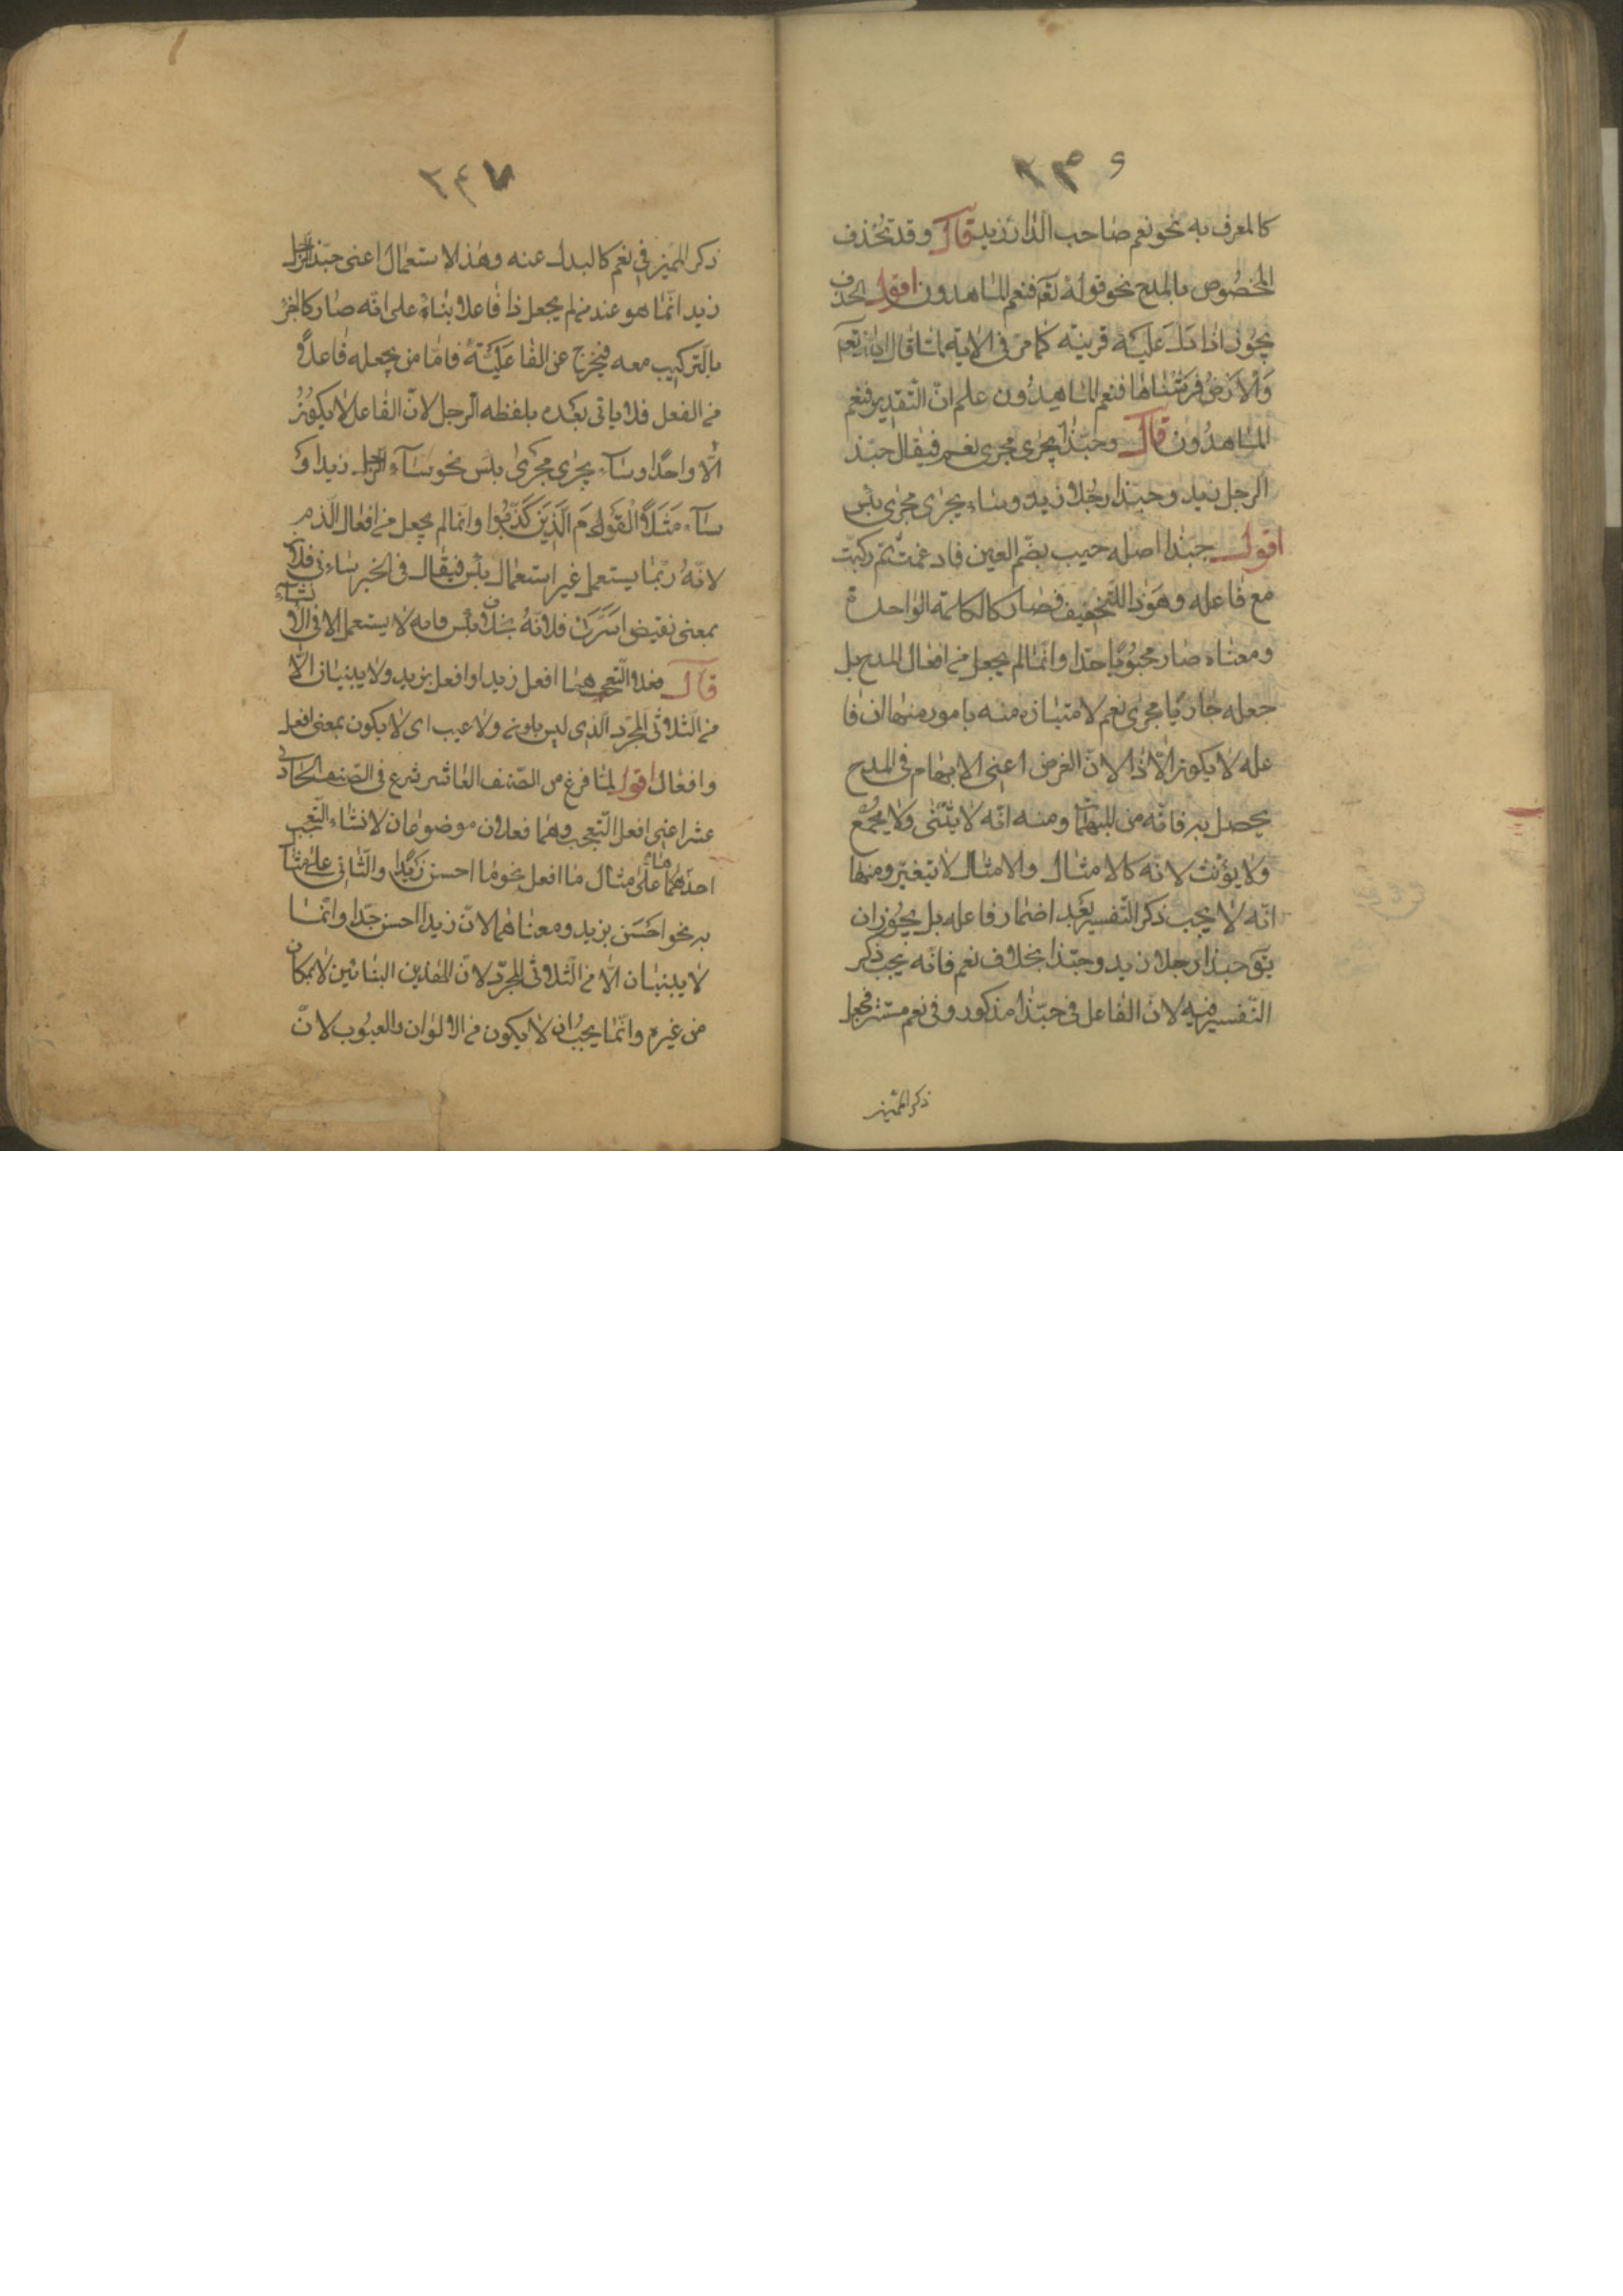 ٢٣٩
كالمعرف به نحو نعم صاحب الدار زيد قال وقد تحذف
المخصوص بالمدح نحو قوله تعم فنعم الماهدون اقول الحذف
يجوز اذا دل عليه قرينة كما مر فى الاية لما قال الله تعم
وَالْاَرْضَ فرشناها فنعم الماهدون علم ان التقدير فنعم
الماهدون قال وحبّذا يجرى مجرى نعم فيقال حبّذ
الرجل زيد وحبّذا رجلا زيد وساء يجرى مجرى بئس
اقول حبّذا اصله حبب بضم العين فادغمت ثم ركبت
مع فاعله وهو ذا للتخفيف فصار كالكلمة الواحدة
ومعناه صار محبوبا جدّا وانّما لم يجعل من افعال المدح بل
جعله جاريا مجرى نعم لامتيازه منه بامور منها ان فا
عله لا يكون الّا ذا لانّ الغرض اعنى الابهام فى المدح
يحصل به فانّه من المبهمات ومنه انّه لا يثنّى ولا يجمع
ولا يؤنث لانّه كالامثال والامثال لا تتغيّر ومنها
انّه لا يجب ذكر التّفسير بعد اضمار فاعله بل يجوز ان
يّق حبذا رجلا زيد وحبّذا بخلاف نعم فانّه يجب ذكر
التّفسير فيه لانّ الفاعل فى حبّذا مذكور وفى نعم مستتر فجعل
ذكر المميّز
٢٤٧
ذكر المميّز فى نعم كالبدل عنه وهذا لاستعمال اعنى حبّذا الرجل
زيد انّما هو عند من لم يجعل ذا فاعلا بناءً على انّه صار كالجزء
بالتركيب معه فيخرج عن الفاعليّة فامّا من يجعله فاعل
من الفعل فلا ياتى بعده بلفظه الرجل لانّ الفاعل لا يكون
الّا واحدًا وساء يجرى مجرى بئس نحو ساء الرجل زيدا و
ساء مَثَلًا الْقَوْمُ الَّذِينَ كَذَّبُوا وانّما لم يجعل من افعال الذم
لانّهُ ربّما يستعمل غير استعمال بئس فيقال فى الخبر ساءنى فلان
بمعنى نقيض اسرّنى فلان بخلاف بئس فانه لا يستعمل الا فى الا
نشاء
قال فعلا التعجب هما افعل زيدا وافعل بزيد ولا يبنيان الّا
من الثلاثى المجرّد الذى ليس بلون ولا عيب اى لا يكون بمعنى افعل
وافعال اقول لمّا فرغ من الصّنف العاشر شرع فى الصنف الحادى
عشر اعنى افعل التّعجب وهما فعلان موضوعان لانشاء التّعجب
احدهما على مثال ما افعل نحو ما احسن زيدًا والثانى على مثال
به نحو احسن بزيد ومعناهما لانّ زيدا احسن جدّا وانّما
لا يبنيان الّا من الثلاثى المجرّد لانّ هذين البنائين لا يمكن
من غيره وانّما يجب ان لا يكون من الالوان والعيوب لانّ